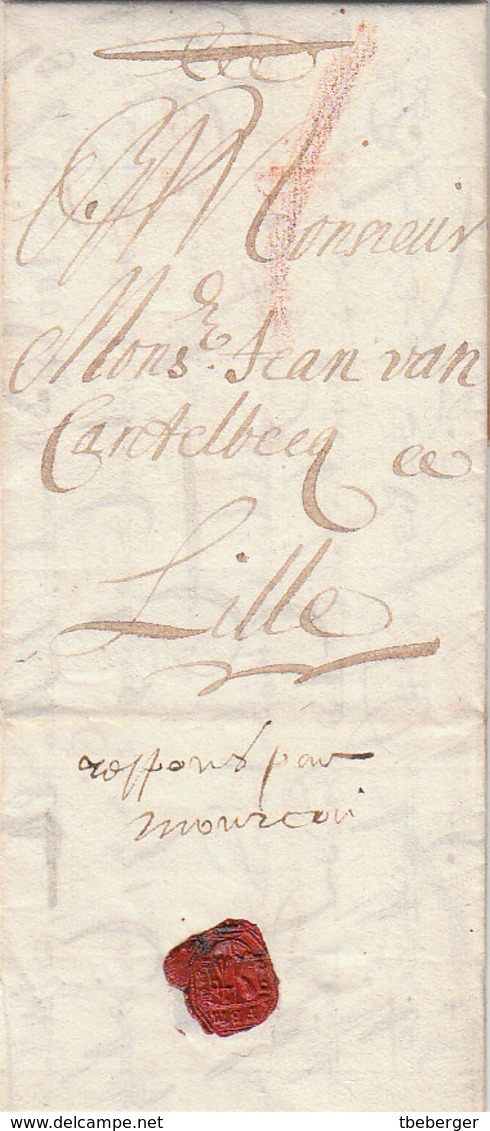 A Monsieur
Monsr. Jean van
Cantelbeeq
Lille
respons par
mourcou
Website: delcampe.net
User: tbeberger